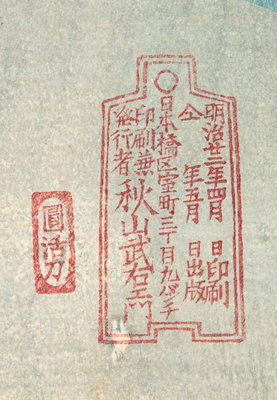 明治廿二年四月 日印刷
仝 年五月 日出版
日本橋区室町三丁目九バンチ
印刷兼
発行者
秋山武右エ門
圓活刀